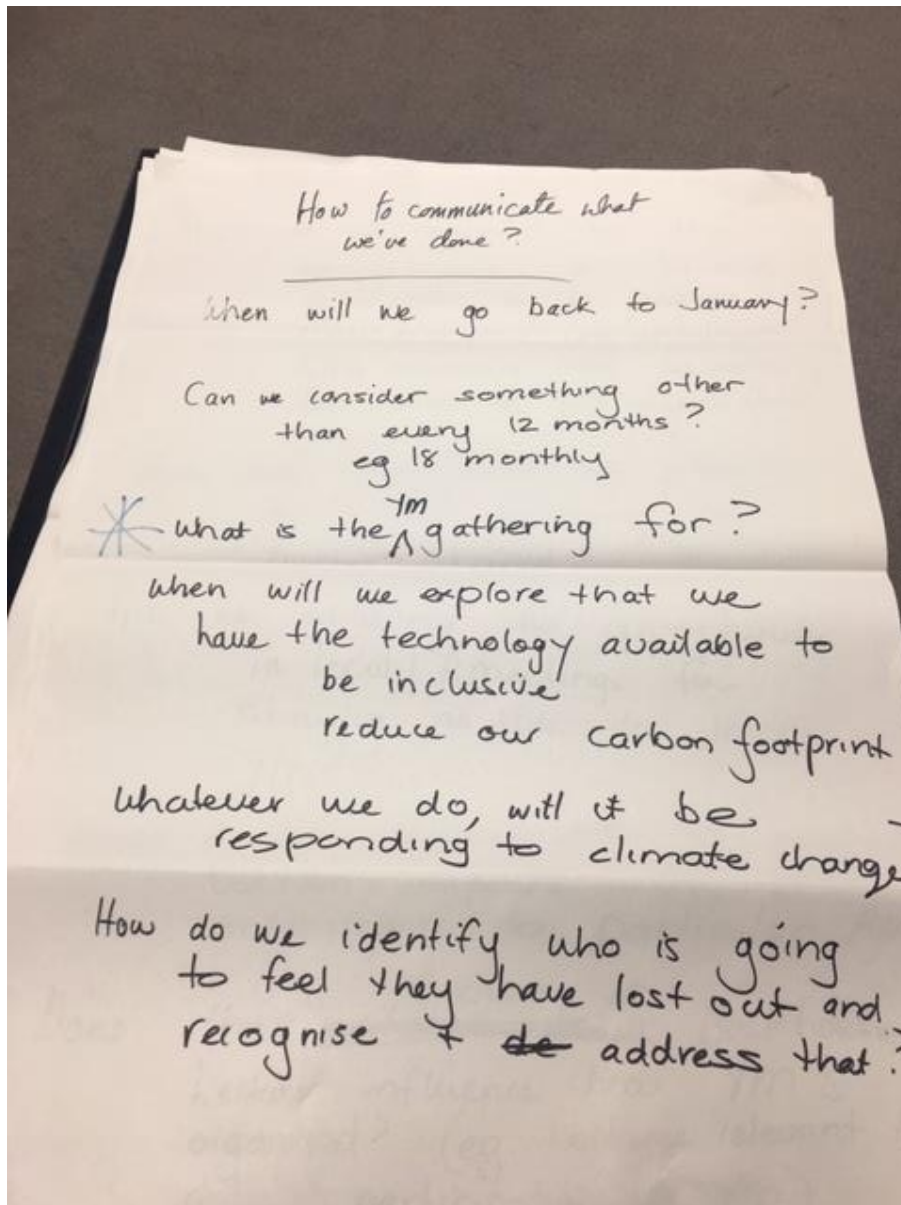 How to communicate what
we've done?
When will we go back to January?
Can we consider something other
than every 12 months?
eg 18 monthly
What is the YM gathering for?
when will we explore that we
have the technology available to
be inclusive
reduce our carbon footprint
Whatever we do, will it be
responding to climate change
How do we identify who is going
to feel they have lost out and
recognise + address that?